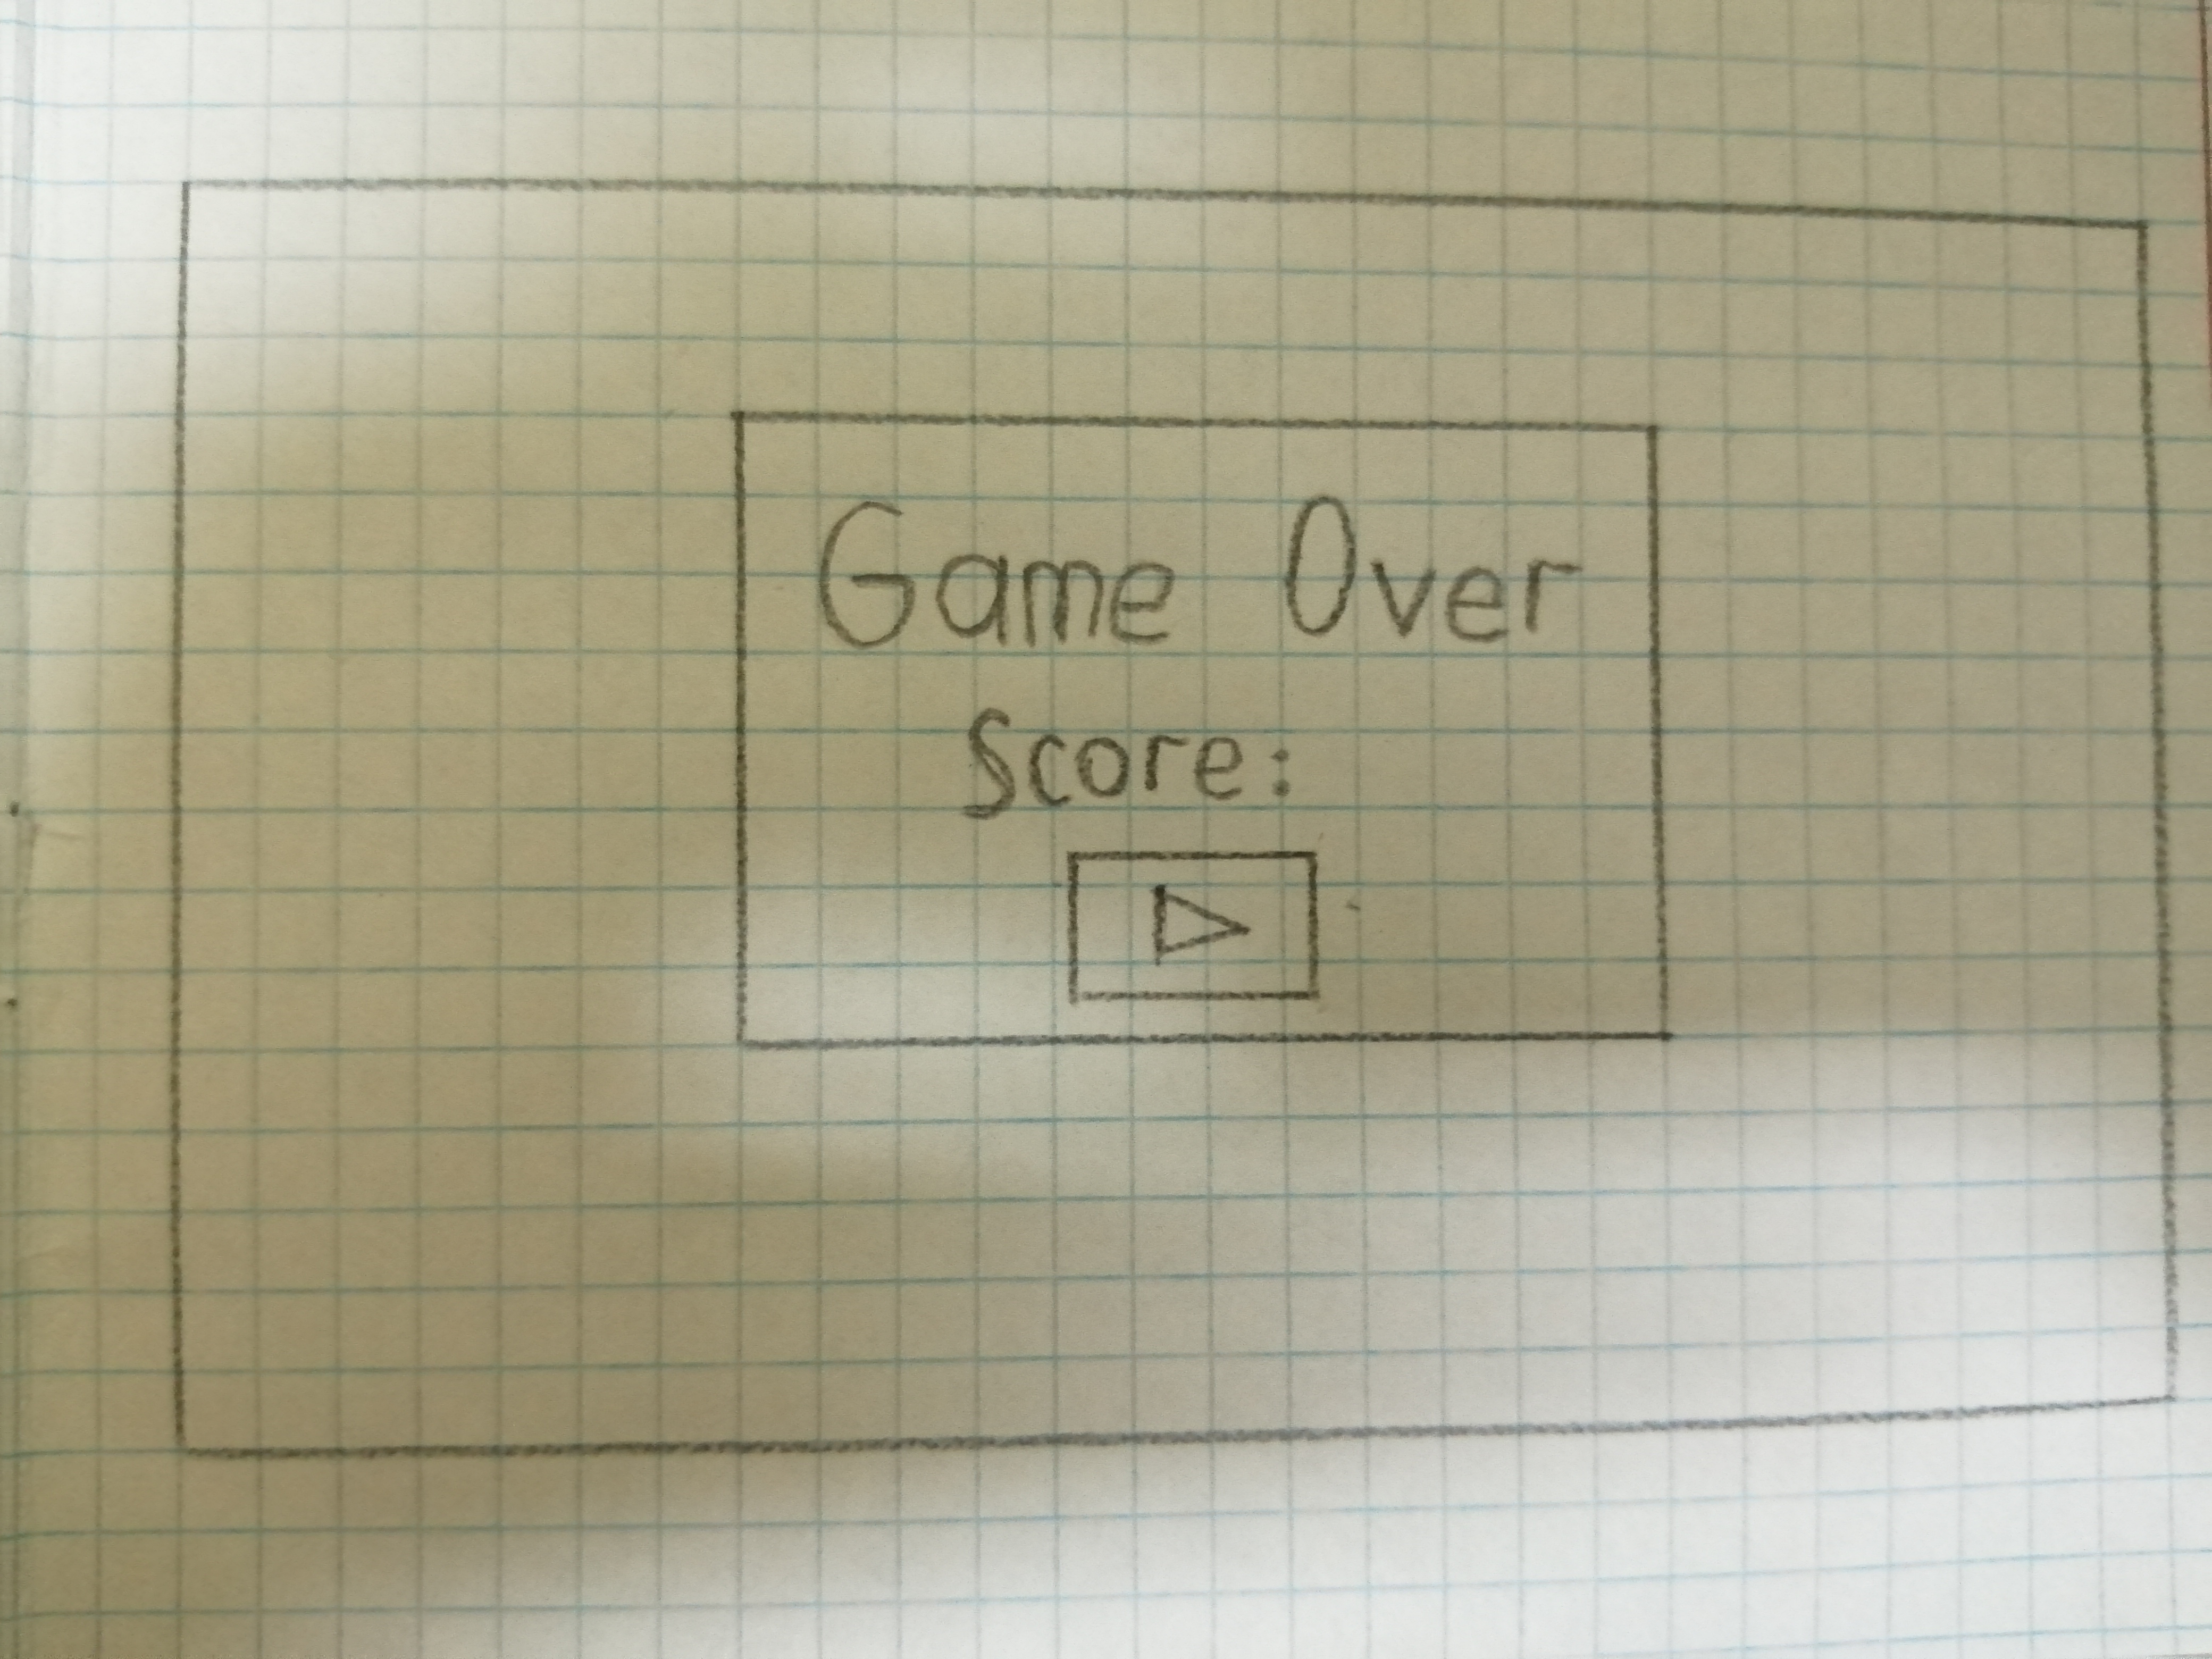 Game Over
Score: